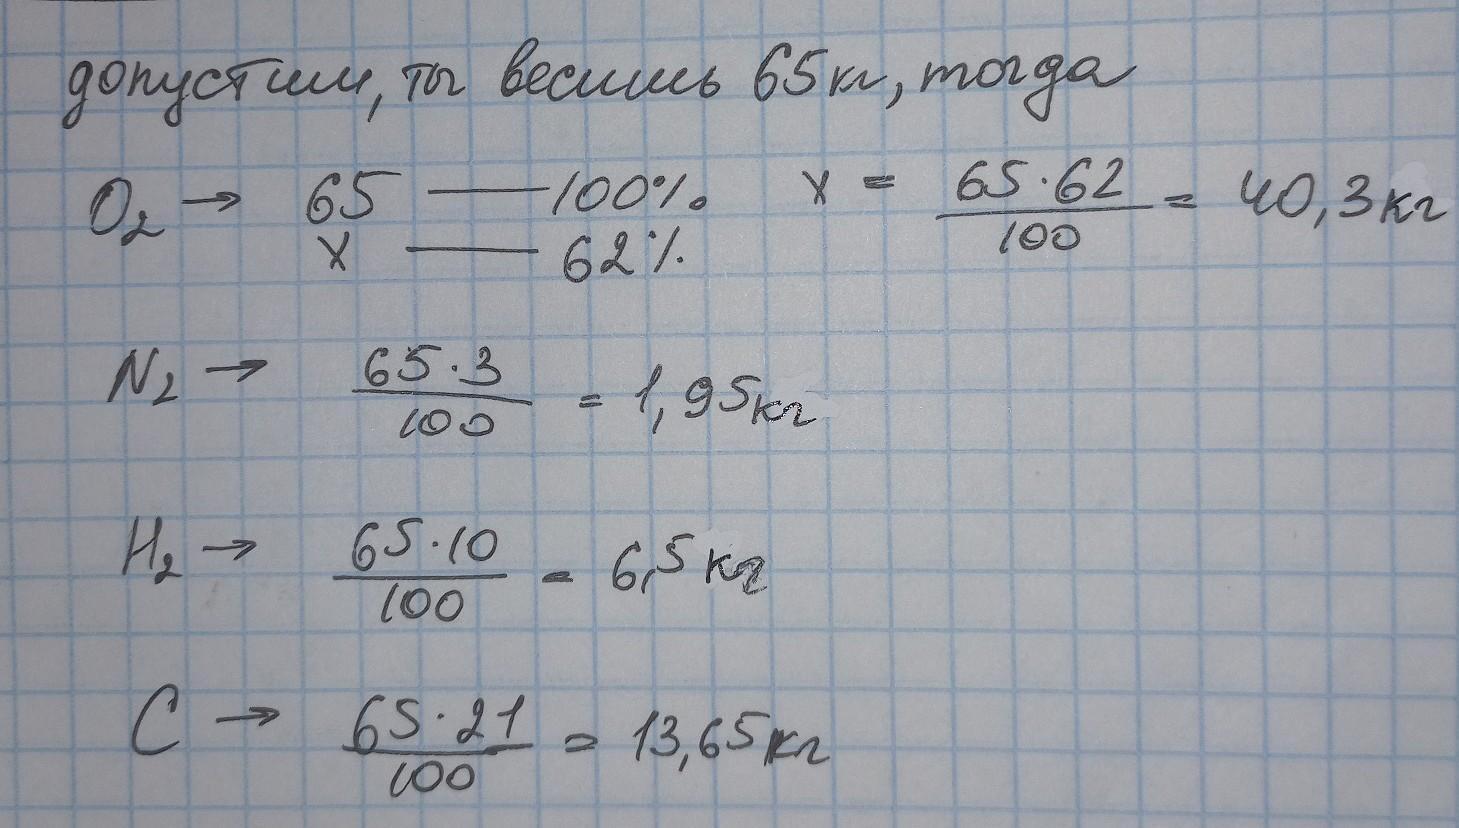 допустим, ты весишь 65кг, тогда
O₂ → 65 — 100% x = 65·62/100 = 40,3кг
x — 62%
N₂ → 65·3/100 = 1,95кг
H₂ → 65·10/100 = 6,5кг
C → 65·21/100 = 13,65кг